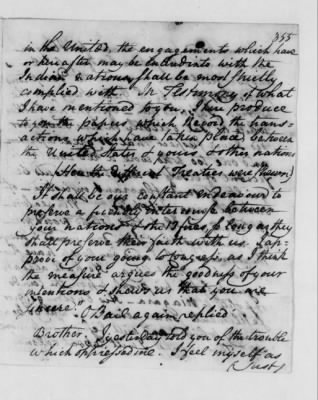 355
in the United, the engagements which have
or hereafter may be entered into with the
Indian nations, shall be most strictly
complied with. In Testimony of what
I have mentioned to you, I here produce
to you the papers which record the trans-
actions which have taken place between
the United States & yours & other nations
Here the different Treaties were shewn
It shall be our constant endeavour to
preserve a friendly intercourse between
your nations & the 13 fires, so long as they
shall preserve their faith with us. I ap-
prove of your going to Congress, as I think
the measure argues the goodness of your
intentions & shews us that you are
sincere." again replied
Brother, yesterday told you of the trouble
which oppressed me. I feel myself as
Just